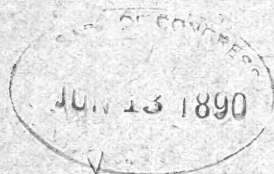 OF CONGRESS
JUN 13 1890